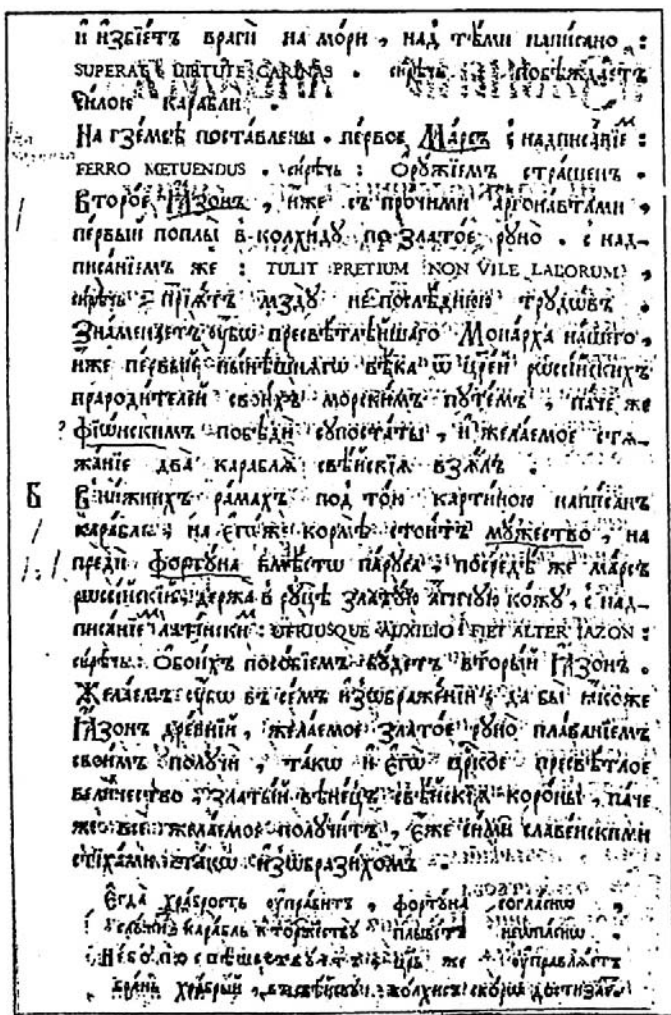 и҆ и҆збїе́тъ врагѝ на мо́ри , над тѣ́ми напи́сано :
SUPERAT VIRTUTE CARINAS . си́рѣчь побѣжда́етъ
си́лою кара́бли .
На гзе́мсѣ поста́влены . пе́рвое Ма́рсъ с̾ надписа́нїемъ :
FERRO METUENDUS . си́рѣчь : Ѻ҆рꙋ́жїемъ стра́шенъ .
Второ́е І҆азонъ , и҆́же съ про́чими аргона́ѵтами ,
пе́рвый поплы̀ в̾ колхи́дꙋ по злато́е рꙋно̀ . с̾ над-
писа́нїемъ же : TULIT PRETIUM NON VILE LABORUM ,
си́рѣчь прїѧ́тъ мздꙋ̀ не послѣ́днюю трꙋдѡ́въ .
Знаменꙋ́етъ ᲂу҆́бѡ пресвѣтлѣ́йшаго Мона́рха на́шего ,
и҆́же пе́рвый ны́нѣшнѧгѡ вѣ́ка ѿ цр҃е́й рѡссі́йскихъ
прароди́телей свои́хъ морски́мъ пꙋте́мъ , па́че же
? фїѡ́нскимъ побѣдѝ сꙋпоста́ты , и҆ жела́емое стѧ-
жа́нїе два̀ карабла̀ свѣ́йскїѧ взѧ́лъ .
Б В ни́жнихъ ра́махъ под то́ю карти́ною напи́санъ
кара́бль , на є҆гѡ́же кормѣ̀ стои́тъ мꙋ́жество , на
предѝ фортꙋ́на вмѣ́стѡ па́рꙋса , посредѣ́ же ма́рсъ
рѡссі́йскїй , держа̀ в̾ рꙋцѣ̀ златꙋ́ю а́гнчꙋю ко́жꙋ , с̾ над-
писа́нїемъ лати́нскимъ : UTRIUSQUE AUXILIO FIET ALTER IAZON :
си́рѣчь : Ѻ҆бои́хъ посо́бїемъ бꙋ́детъ вторы́й І҆азонъ .
Жела́емъ ᲂу҆́бѡ въ се́мъ и҆зѡбраже́нїи , да бы̀ ꙗ҆́коже
І҆азонъ дре́внїй , жела́емое злато́е рꙋно̀ пла́ванїемъ
свои́мъ полꙋчѝ , та́кѡ и҆ є҆гѡ̀ цр҃кое пресвѣ́тлое
вели́чество , златы́й вѣне́цъ свѣ́йскїѧ коро́ны , па́че
же всѐ жела́емое полꙋ́читъ , є҆́же си́ми славе́нскими
стїха́ми та́кѡ и҆зѡбрази́хомъ .
Є҆гда̀ хра́брость ᲂу҆пра́витъ , фортꙋ́на согла́снѡ ,
кара́бль к̾ торжествꙋ̀ плыве́тъ неѡпа́снѡ .
Не́бо поспѣшествꙋ́етъ цр҃ь же ᲂу҆правлѧ́етъ
бра́нь хра́брый , колхи́съ ско́рѡ достиза́етъ .